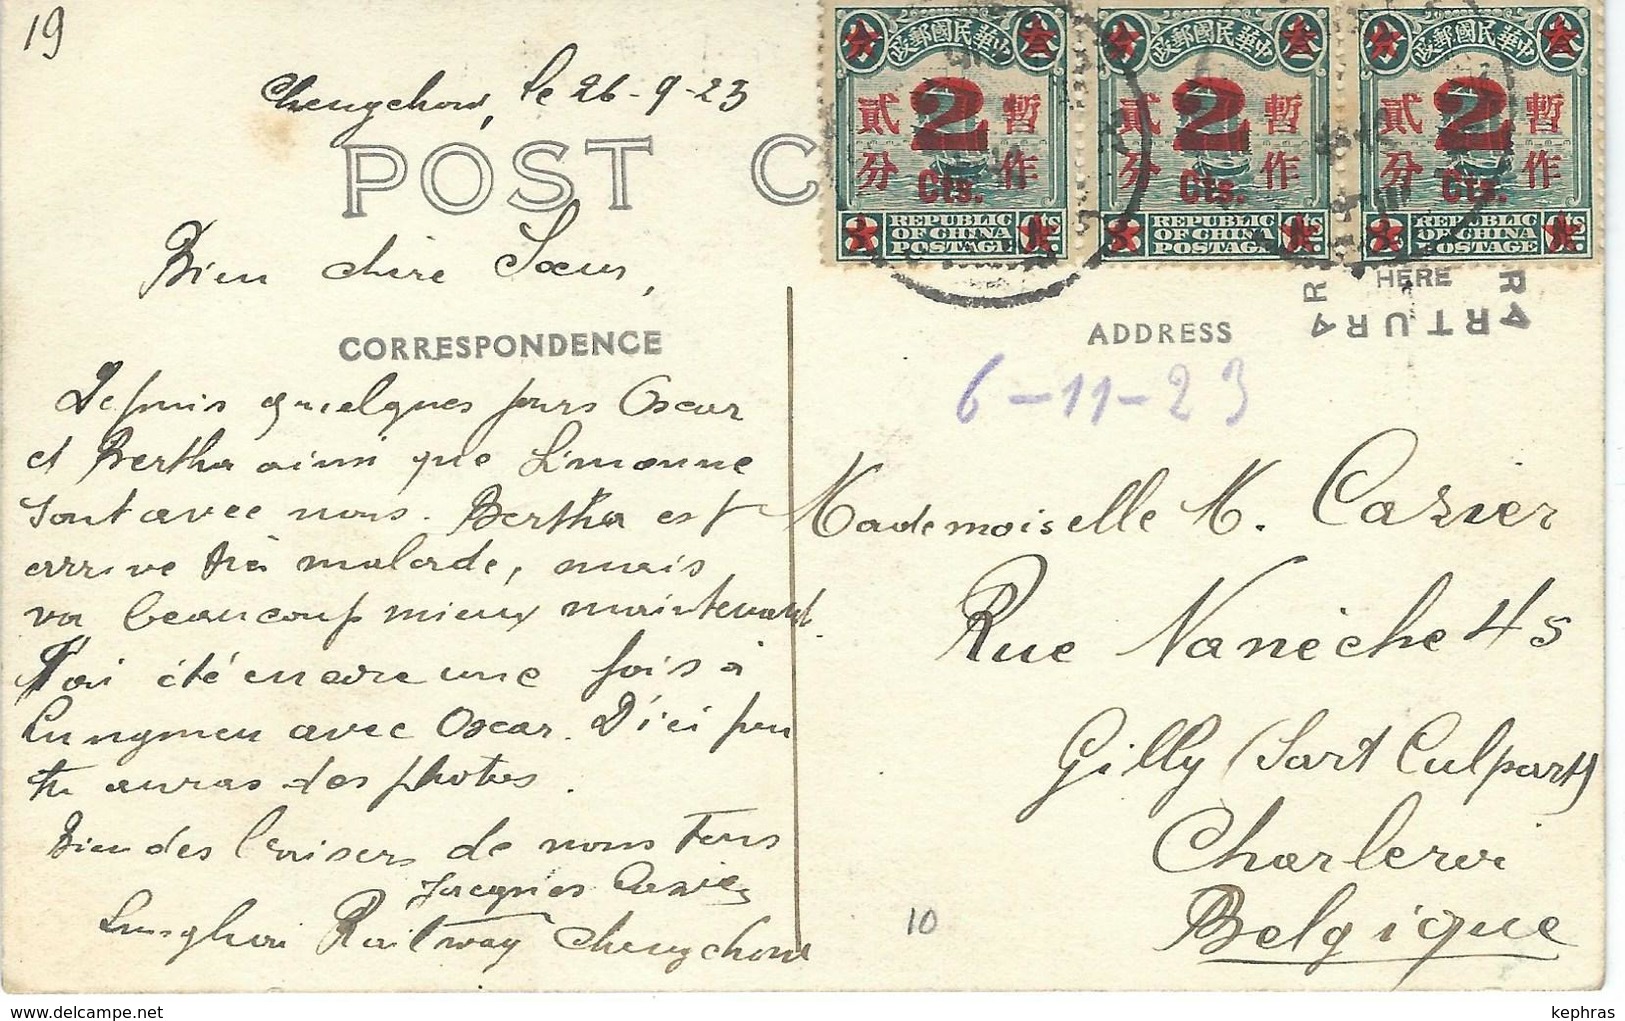 19
Chengchow, le 26-9-23
POST C
Bien chère Soeur,
CORRESPONDENCE
Depuis quelques jours Oscar
et Bertha ainsi que Simonne
sont avec nous. Bertha est
arrivé très malade, mais
va beaucoup mieux maintenant.
J'ai été encore une fois à
Lungmen avec Oscar. D'ici peu
tu auras des photos.
Bien des baisers de nous tous
Jacques Cazier
Lunghai Railway Chengchow
中華民國郵政
叁 分
暫作 貳分
2
Cts.
REPUBLIC
OF CHINA
POSTAGE
中華民國郵政
叁 分
暫作 貳分
2
Cts.
REPUBLIC
OF CHINA
POSTAGE
中華民國郵政
叁 分
暫作 貳分
2
Cts.
REPUBLIC
OF CHINA
POSTAGE
HERE
ARTURA
ADDRESS
6-11-23
Mademoiselle M. Cazier
Rue Nanèche 45
Gilly (Sart Culpart)
Charleroi
Belgique
10
delcampe.net
kephras